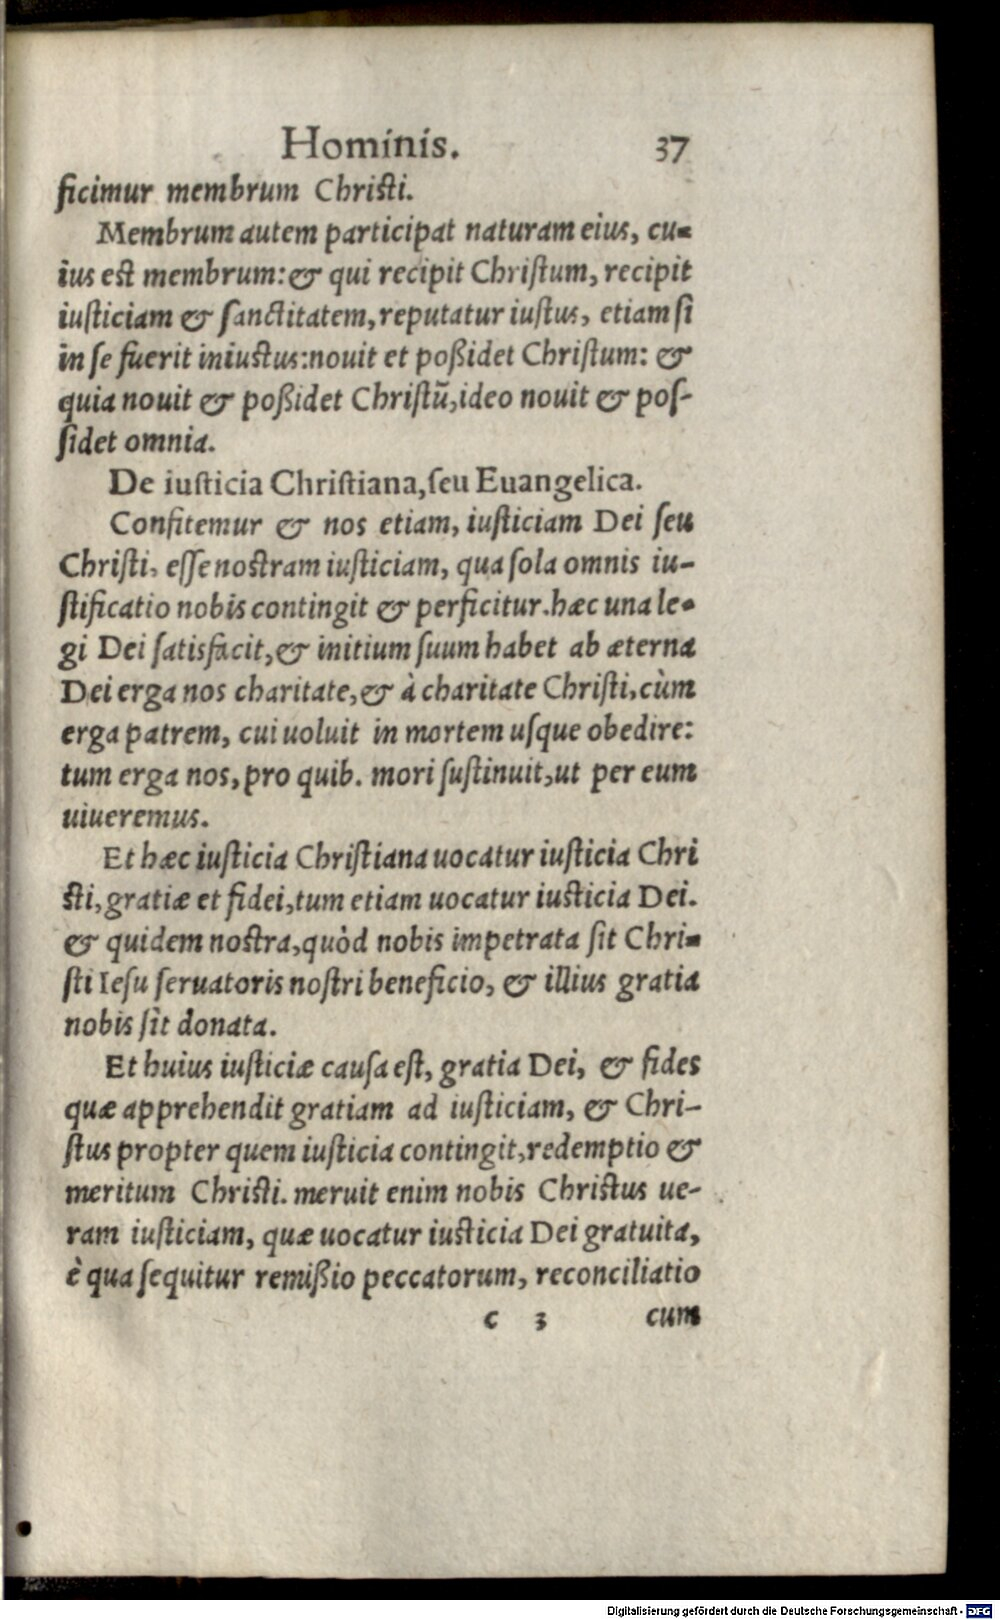 Hominis. 37
ficimur membrum Christi.
Membrum autem participat naturam eius, cu-
ius est membrum: & qui recipit Christum, recipit
iusticiam & sanctitatem, reputatur iustus, etiam si
in se fuerit iniustus: nouit et poßidet Christum: &
quia nouit & poßidet Christũ, ideo nouit & pos-
sidet omnia.
De iusticia Christiana, seu Euangelica.
Confitemur & nos etiam, iusticiam Dei seu
Christi, esse nostram iusticiam, qua sola omnis iu-
stificatio nobis contingit & perficitur. hæc una le-
gi Dei satisfacit, & initium suum habet ab æterna
Dei erga nos charitate, & à charitate Christi, cùm
erga patrem, cui uoluit in mortem usque obedire:
tum erga nos, pro quib. mori sustinuit, ut per eum
uiueremus.
Et hæc iusticia Christiana uocatur iusticia Chri
sti, gratiæ et fidei, tum etiam uocatur iusticia Dei.
& quidem nostra, quòd nobis impetrata sit Chri-
sti Iesu seruatoris nostri beneficio, & illius gratia
nobis sit donata.
Et huius iusticiæ causa est, gratia Dei, & fides
quæ apprehendit gratiam ad iusticiam, & Chri-
stus propter quem iusticia contingit, redemptio &
meritum Christi. meruit enim nobis Christus ue-
ram iusticiam, quæ uocatur iusticia Dei gratuita,
è qua sequitur remißio peccatorum, reconciliatio
c 3 cum
Digitalisierung gefördert durch die Deutsche Forschungsgemeinschaft - DFG